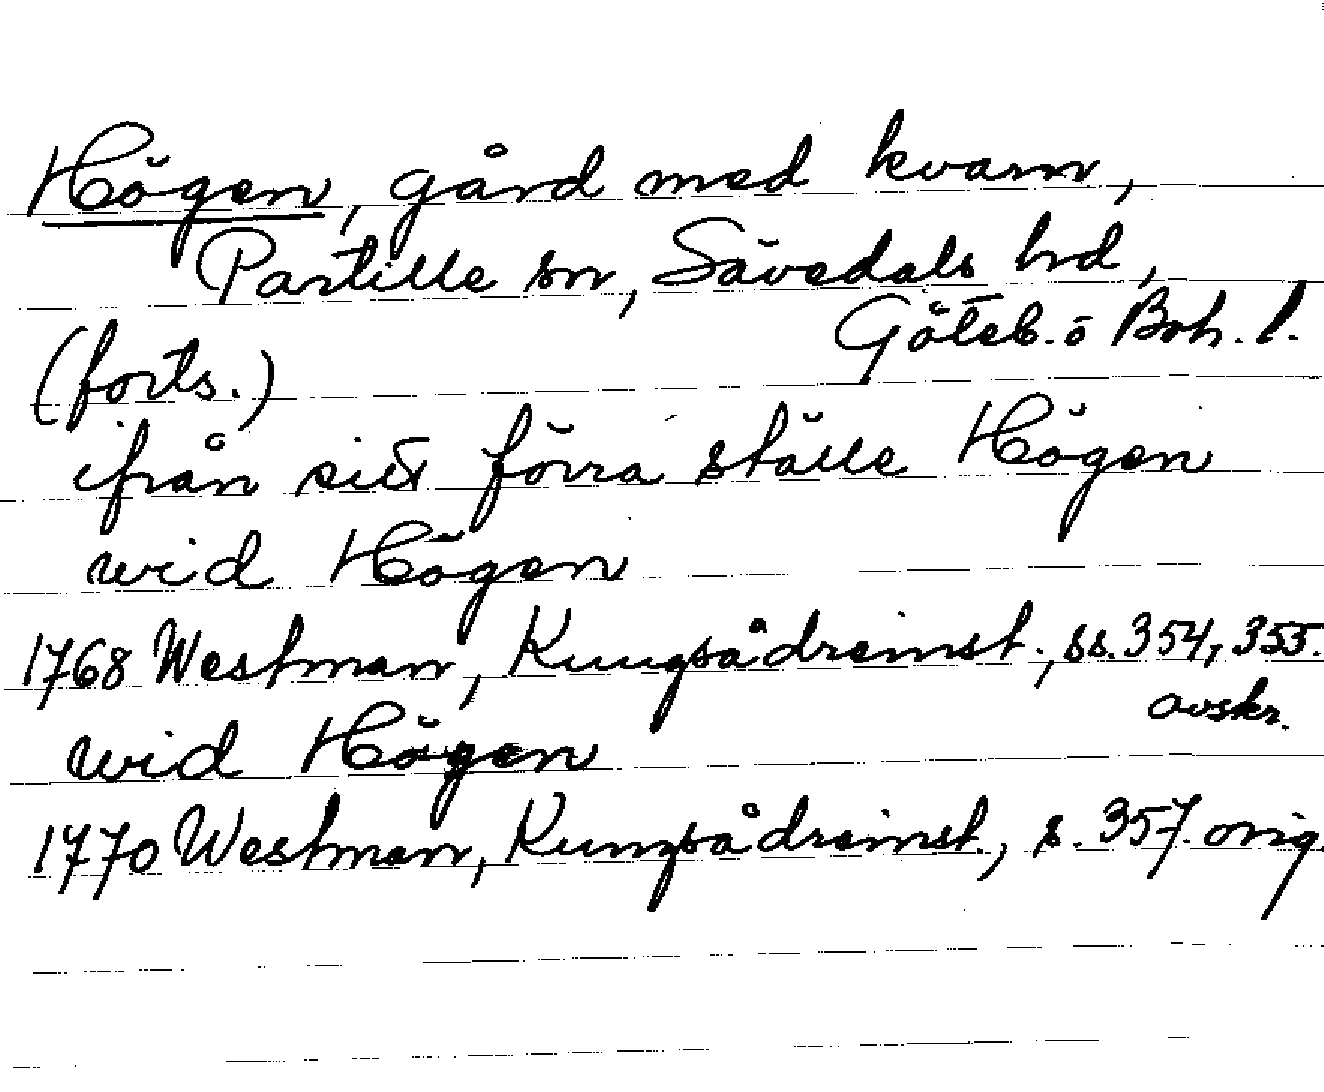 Högen, gård med kvarn,
Partille sn, Sävedals hd,
Göteb. o Boh. l.
(forts.)
ifrån sitt förra ställe Högen
wid Högen
1768 Westman, Kungsådreinst., ss. 354, 355.
avskr.
wid Högen
1770 Westman, Kungsådreinst., s. 357. orig.